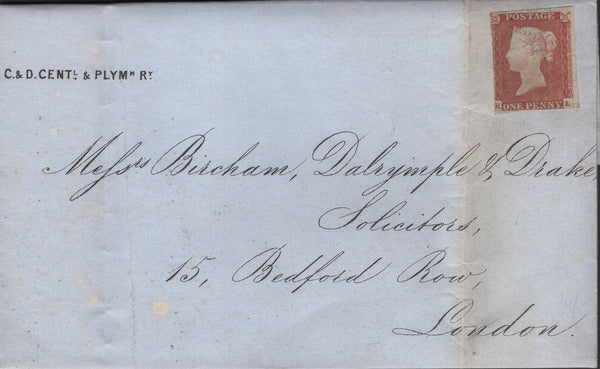 POSTAGE
K L
ONE PENNY
C. & D. CENTL. & PLYMH RY
Messrs Bircham, Dalrymple & Drake,
Solicitors,
15, Bedford Row,
London.